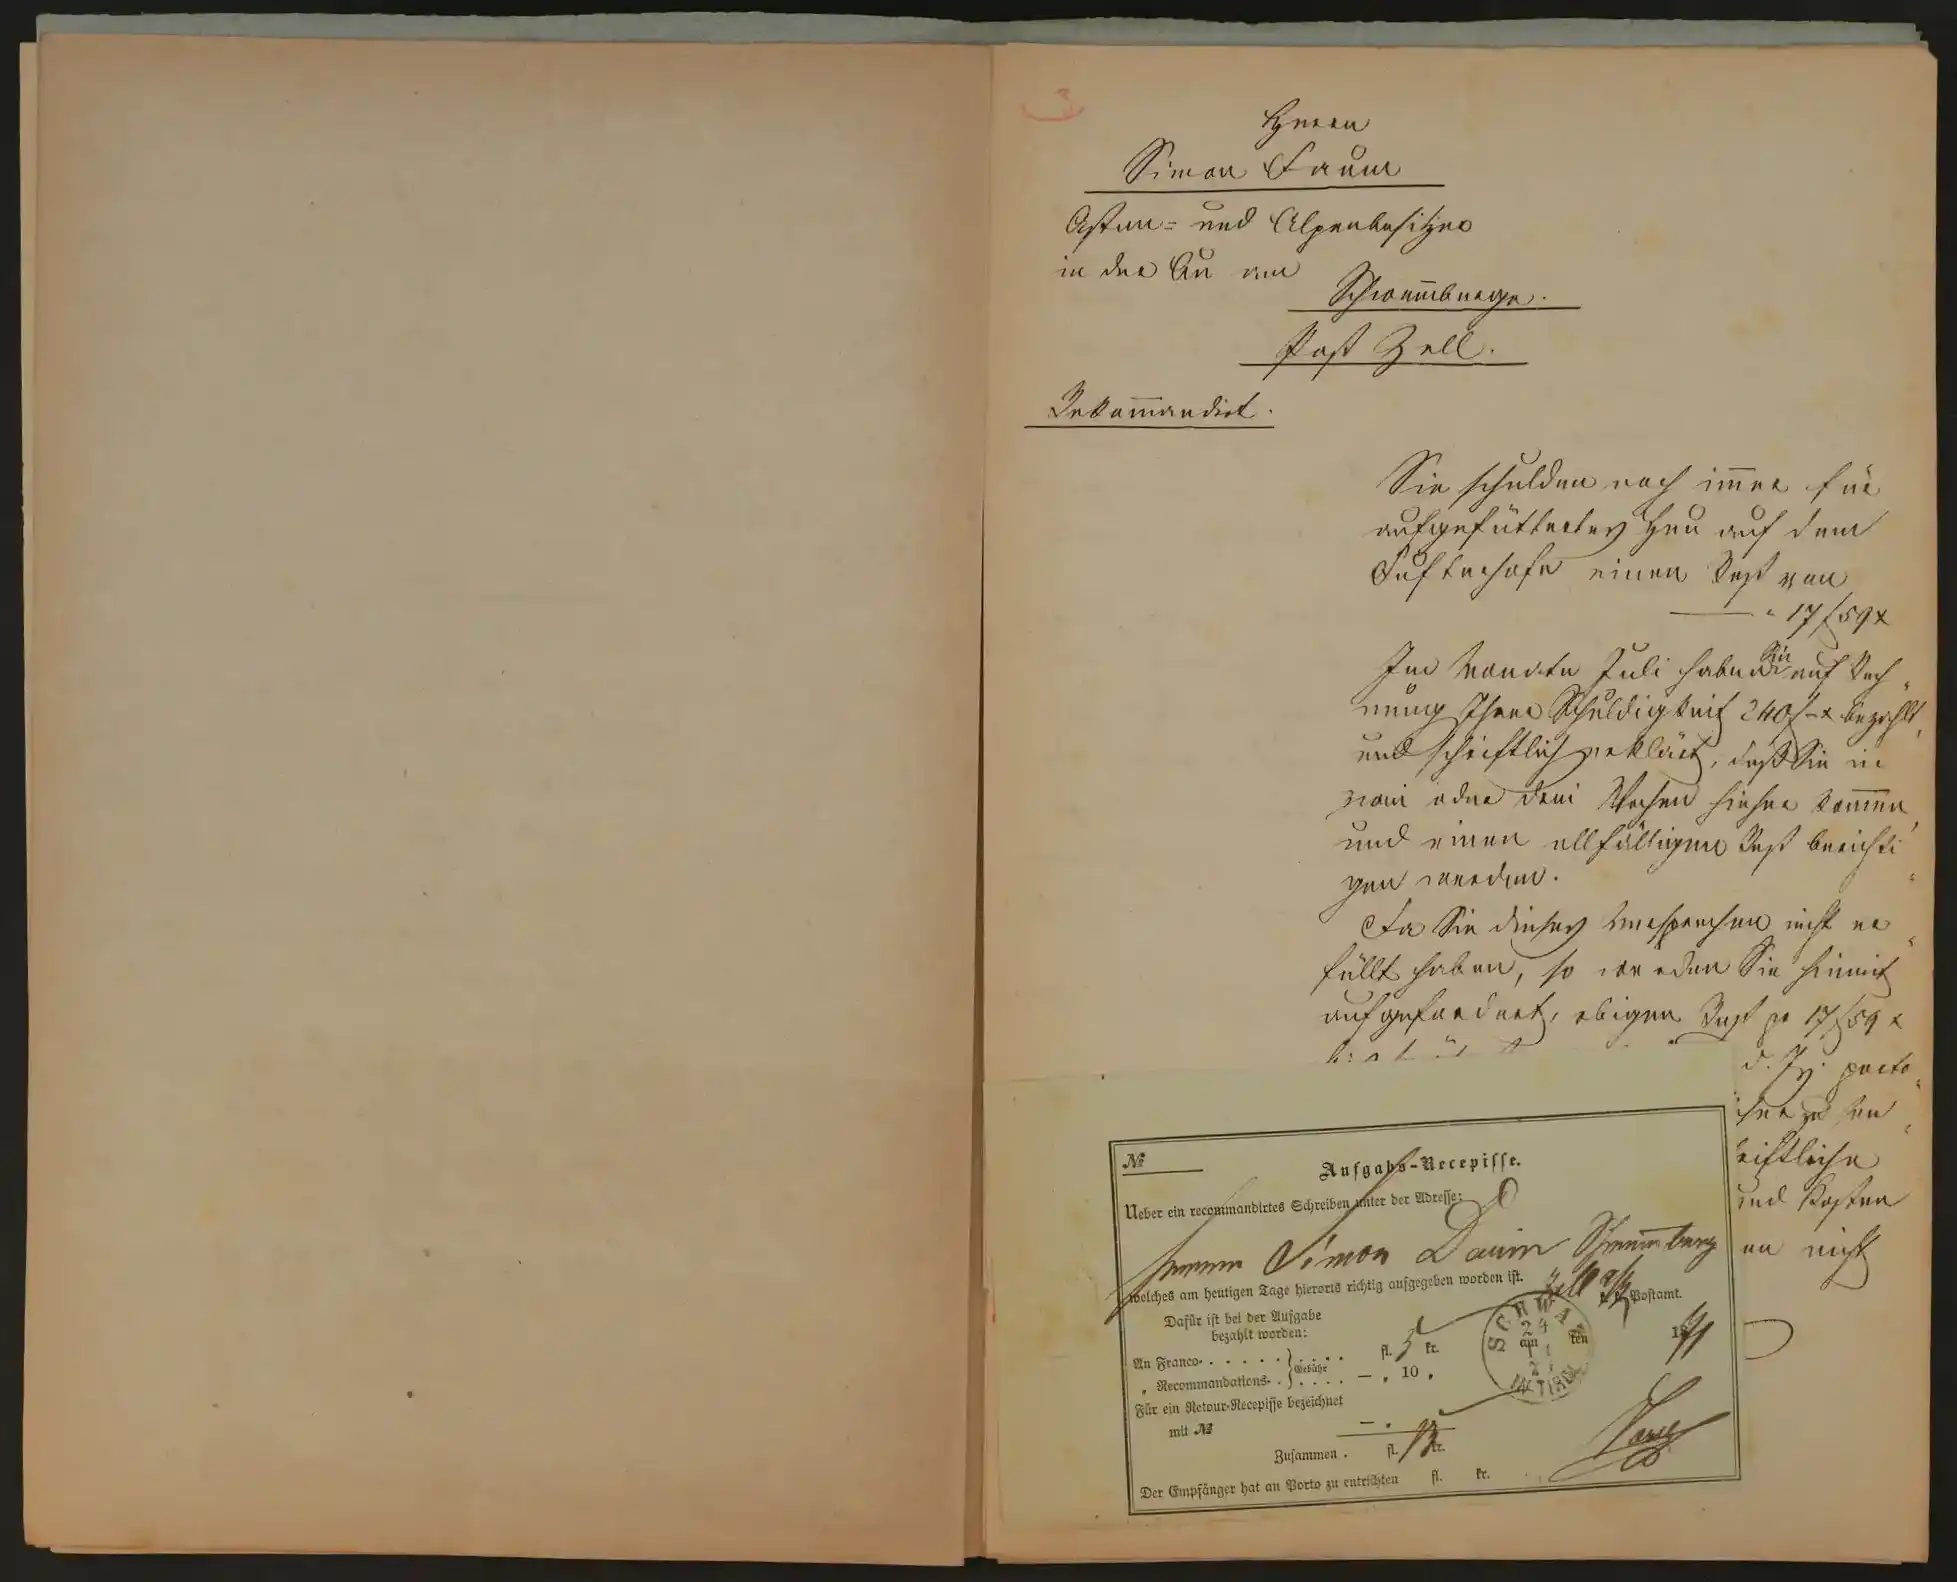 3
Herrn
Simon Daum
Asten= und Alpenbesitzer
in der Au am
Schwem̅berge.
Post Zell.
Rekom̅andirt.
Sie schulden noch im̅er für
aufgefüttertes Heu auf dem
einen Rest von
— " 17 f 59 x
Im Monate Juli haben Sie auf Rech-
nung Ihrer Schuldigkeit 240 f – x bezahlt,
und schriftlich erklärt, daß Sie in
zwei oder drei Wochen hieher kom̅en,
und einen allfälligen Rest berichti-
gen werden.
Da Sie dieses Versprechen nicht er-
füllt haben, so werden Sie hiemit
aufgefordert, obigen Rest pr 17 f 59 x
d. Js. porto-
zu sen-
riftliche
und Kosten
en nicht
№
Aufgabs-Recepisse.
Ueber ein recommandirtes Schreiben unter der Adresse:
Herrn Simon Daum
welches am heutigen Tage hierorts richtig aufgegeben worden ist. Zell
Postamt.
Dafür ist bei der Aufgabe
bezahlt worden:
SCHWAZ
24
IN TIROL
am ten 18
An Franco- . . . . . . . . . fl. 5 kr.
„ Recommandations- . Gebühr . . . . — „ 10 „
Für ein Retour-Recepisse bezeichnet
mit № — „
Zusammen . fl. 15 kr.
Der Empfänger hat an Porto zu entrichten fl. kr.